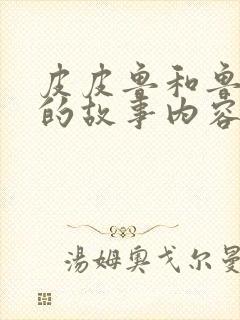 皮皮鲁和鲁
的故事内容
汤姆奥戈尔曼